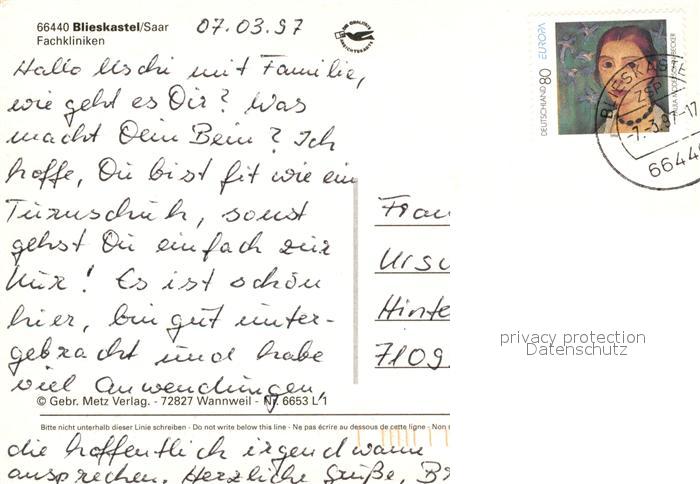 66440 Blieskastel/Saar
Fachkliniken
07.03.97
Hallo Uschi mit Familie,
wie geht es Dir? Was
macht Dein Bein? Ich
hoffe, Du bist fit wie ein
Turnschuh, sonst
gehst Du einfach zur
Kur! Es ist schön
hier, bin gut unter-
gebracht und habe
viel Anwendungen,
© Gebr. Metz Verlag. - 72827 Wannweil - Nr. 6653 L 1
Bitte nicht unterhalb dieser Linie schreiben - Do not write below this line - Ne pas écrire au dessous de cette ligne - Non
die hoffentlich irgendwann
ansprechen. Herzliche Grüße,
Frau
Ursu
Hinte
7109
DEUTSCHLAND 80 EUROPA
PAULA MODERSOHN-BECKER
BLIESKAST
ZSP
-7.3.97-17
66440
privacy protection
Datenschutz